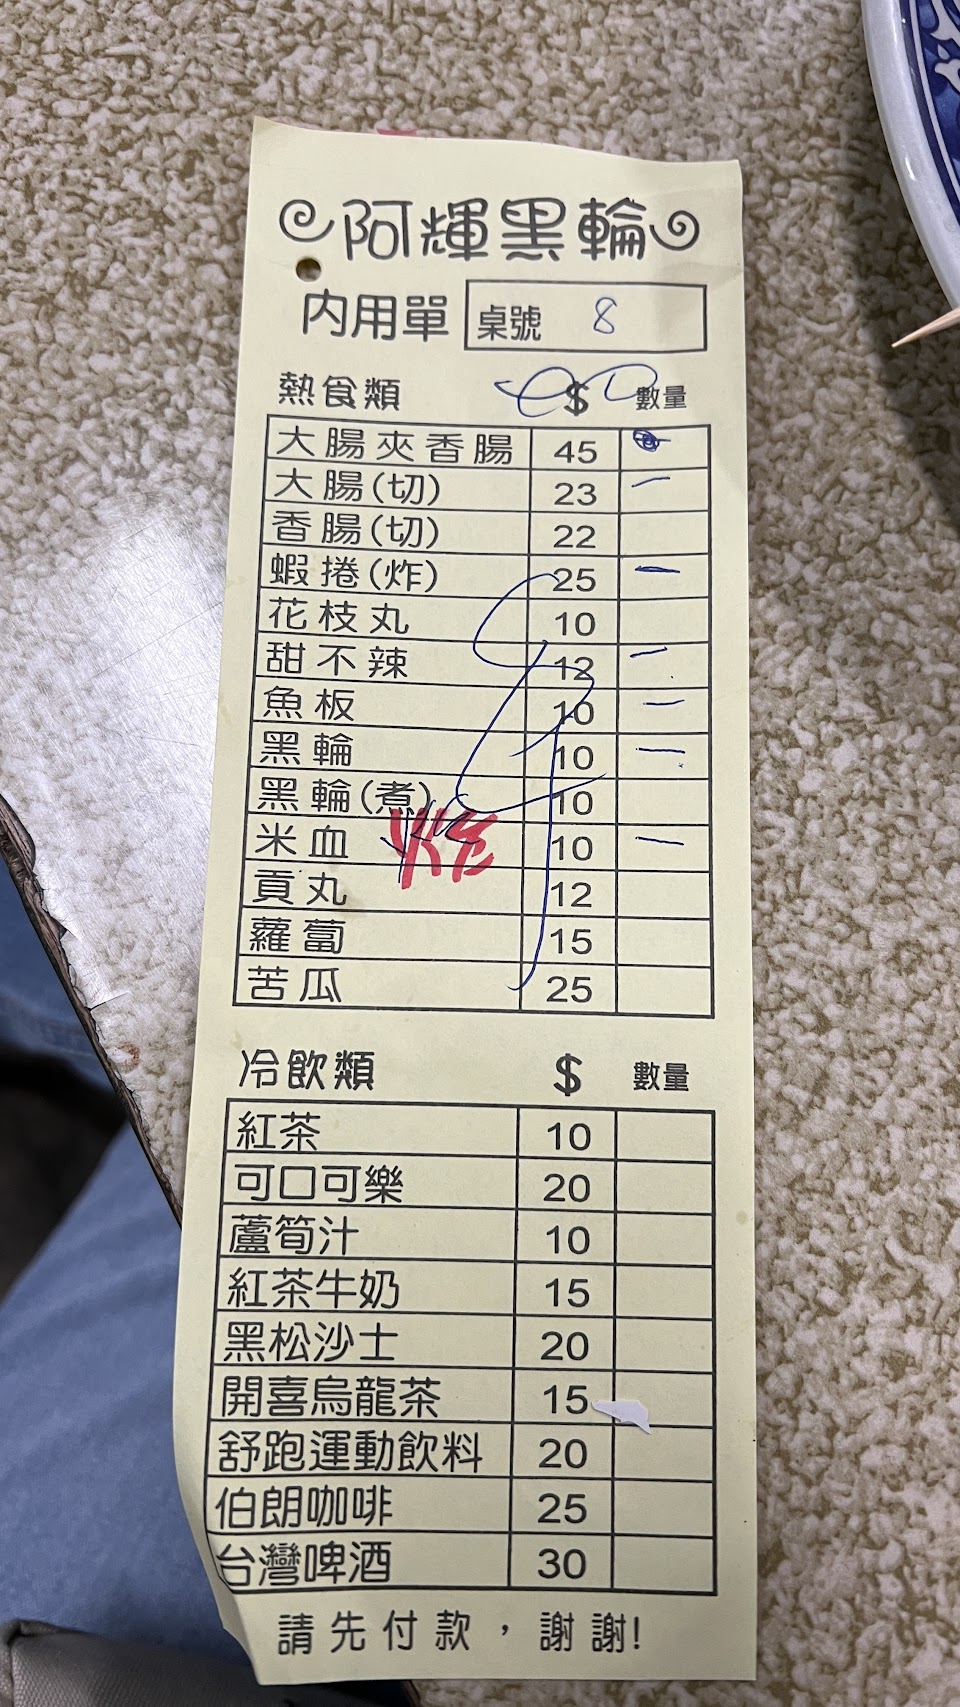 阿輝黑輪
內用單 桌號 8
熱食類 $ 數量
大腸夾香腸 45
大腸(切) 23 一
香腸(切) 22
蝦捲(炸) 25 一
花枝丸 10
甜不辣 12 一
魚板 10 一
黑輪 10 一
黑輪(煮) 10
米血 炸 10 一
貢丸 12
蘿蔔 15
苦瓜 25
冷飲類 $ 數量
紅茶 10
可口可樂 20
蘆筍汁 10
紅茶牛奶 15
黑松沙士 20
開喜烏龍茶 15
舒跑運動飲料 20
伯朗咖啡 25
台灣啤酒 30
請先付款，謝謝!